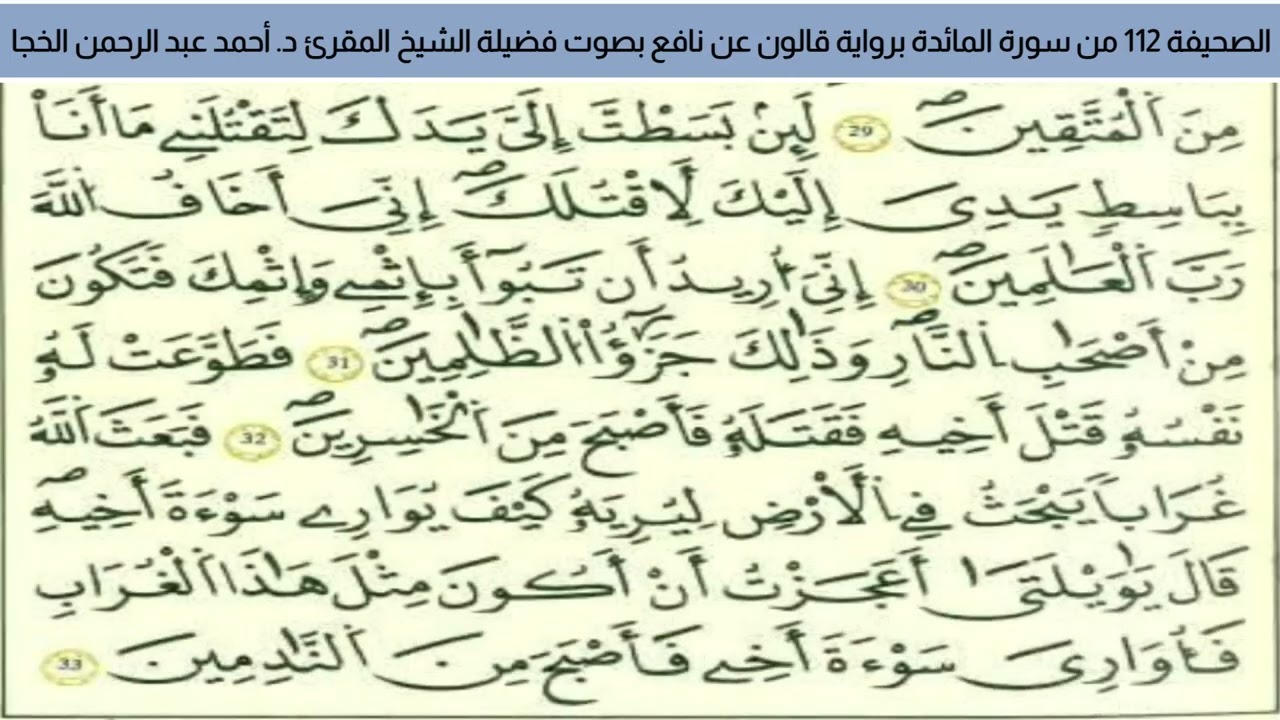 الصحيفة 112 من سورة المائدة برواية قالون عن نافع بصوت فضيلة الشيخ المقرئ د. أحمد عبد الرحمن الخجا
مِنَ اَ۬لْمُتَّقِينَۖ 29 لَئِنۢ بَسَطتَّ إِلَيَّ يَدَكَ لِتَقْتُلَنِے مَا أَنَا۠
بِبَاسِطٍ يَدِيَ إِلَيْكَ لِأَقْتُلَكَۖ إِنِّيَ أَخَافُ اُ۬للَّهَ
رَبَّ اَ۬لْعَٰلَمِينَۖ 30 إِنِّيَ أُرِيدُ أَن تَبُوٓأَ بِإِثْمِے وَإِثْمِكَ فَتَكُونَ
مِنْ أَصْحَٰبِ اِ۬لنَّارِۖ وَذَٰلِكَ جَزَٰٓؤُاْ اُ۬لظَّٰلِمِينَۖ 31 فَطَوَّعَتْ لَهُۥ
نَفْسُهُۥ قَتْلَ أَخِيهِ فَقَتَلَهُۥ فَأَصْبَحَ مِنَ اَ۬لْخَٰسِرِينَۖ 32 فَبَعَثَ اَ۬للَّهُ
غُرَاباٗ يَبْحَثُ فِے اِ۬لْأَرْضِ لِيُرِيَهُۥ كَيْفَ يُوَٰرِے سَوْءَةَ أَخِيهِۖ
قَالَ يَٰوَيْلَتَىٰ أَعَجَزْتُ أَنْ أَكُونَ مِثْلَ هَٰذَا اَ۬لْغُرَابِ
فَأُوَٰرِيَ سَوْءَةَ أَخِے فَأَصْبَحَ مِنَ اَ۬لنَّٰدِمِينَ 33